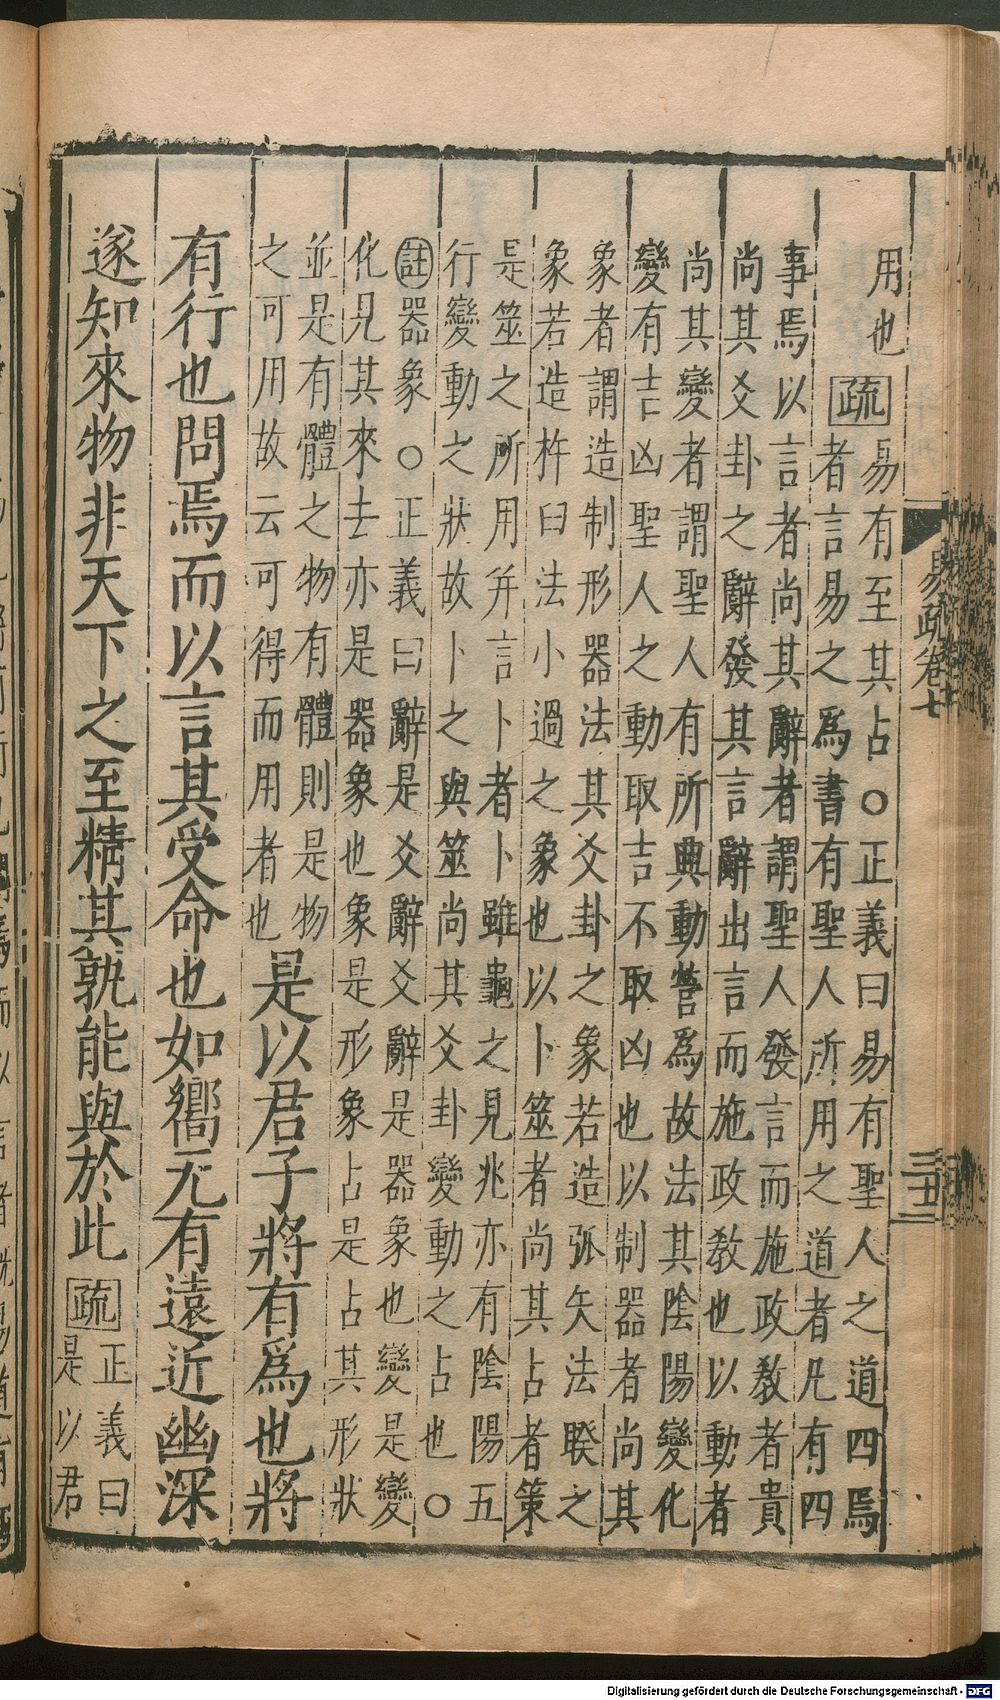 用也
疏
易有至其占○正義曰易有聖人之道四焉
者言易之為書有聖人所用之道者凡有四
事焉以言者尚其辭者謂聖人發言而施政教者貴
尚其爻卦之辭發其言辭出言而施政教也以動者
尚其變者謂聖人有所典動營為故法其陰陽變化
變有吉凶聖人之動取吉不取凶也以制器者尚其
象者謂造制形器法其爻卦之象若造弧矢法睽之
象若造杵臼法小過之象也以卜筮者尚其占者策
是筮之所用并言卜者卜雖龜之見兆亦有陰陽五
行變動之狀故卜之與筮尚其爻卦變動之占也○
註器象○正義曰辭是爻辭爻辭是器象也變是變
化見其來去亦是器象也象是形象占是占其形狀
並是有體之物有體則是物
之可用故云可得而用者也
是以君子將有為也將
有行也問焉而以言其受命也如嚮无有遠近幽深
遂知來物非天下之至精其孰能與於此
疏
正義曰
是以君
易疏卷七
Digitalisierung gefördert durch die Deutsche Forschungsgemeinschaft - DFG